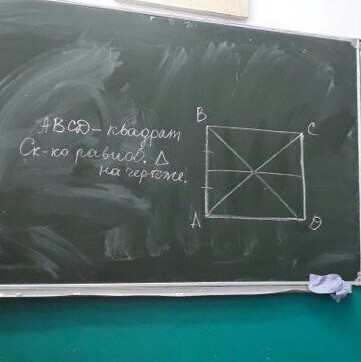 ABCD - квадрат
Ск-ко равноб. Δ
на чертеже!
B
C
A
D